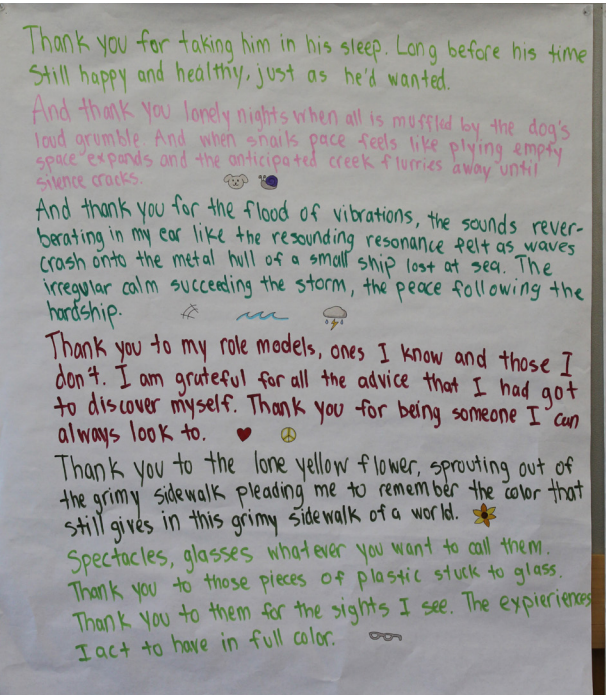 Thank you for taking him in his sleep. Long before his time
Still happy and healthy, just as he'd wanted.
And thank you lonely nights when all is muffled by the dog's
loud grumble. And when snails pace feels like plying empty
space expands and the anticipated creek flurries away until
silence cracks.
And thank you for the flood of vibrations, the sounds rever-
berating in my ear like the resounding resonance felt as waves
crash onto the metal hull of a small ship lost at sea. The
irregular calm succeeding the storm, the peace following the
hardship.
Thank you to my role models, ones I know and those I
don't. I am grateful for all the advice that I had got
to discover myself. Thank you for being someone I can
always look to.
Thank you to the lone yellow flower, sprouting out of
the grimy sidewalk pleading me to remember the color that
still gives in this grimy sidewalk of a world.
Spectacles, glasses whatever you want to call them.
Thank you to those pieces of plastic stuck to glass.
Thank you to them for the sights I see. The expieriences
I act to have in full color.